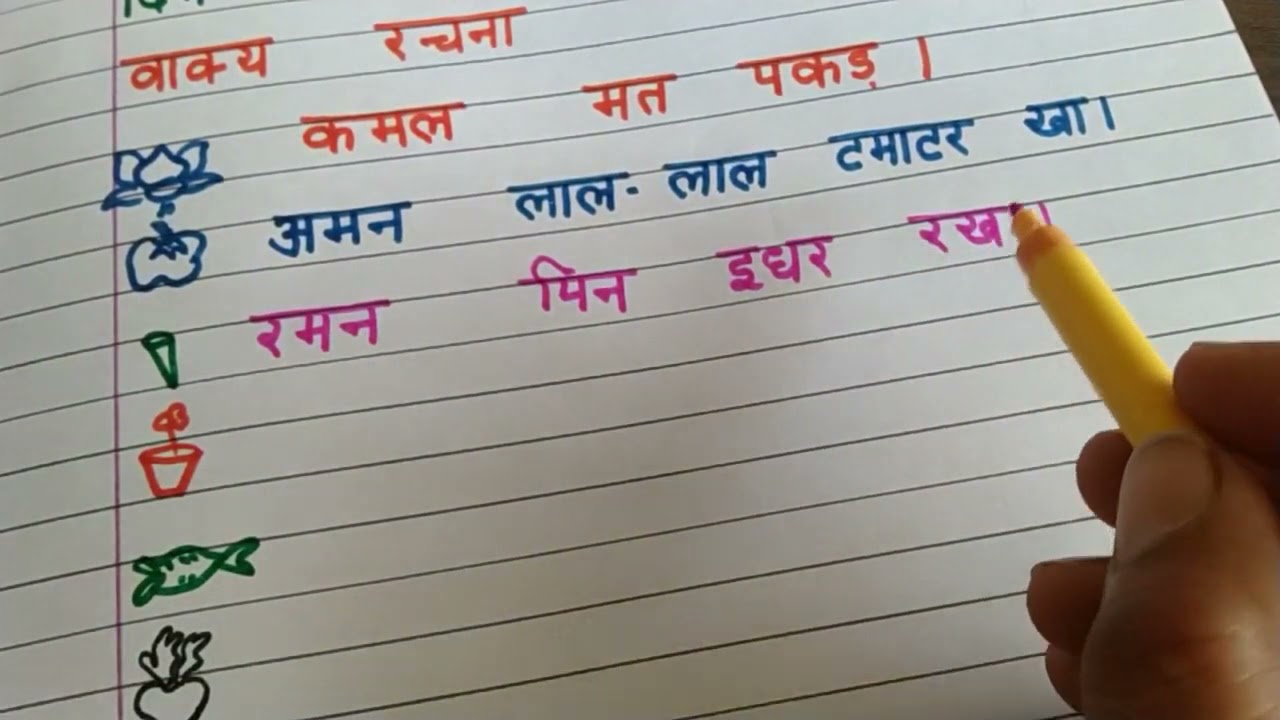 वाक्य रचना
कमल मत पकड़ ।
अमन लाल- लाल टमाटर खा।
रमन पिन इधर रख।